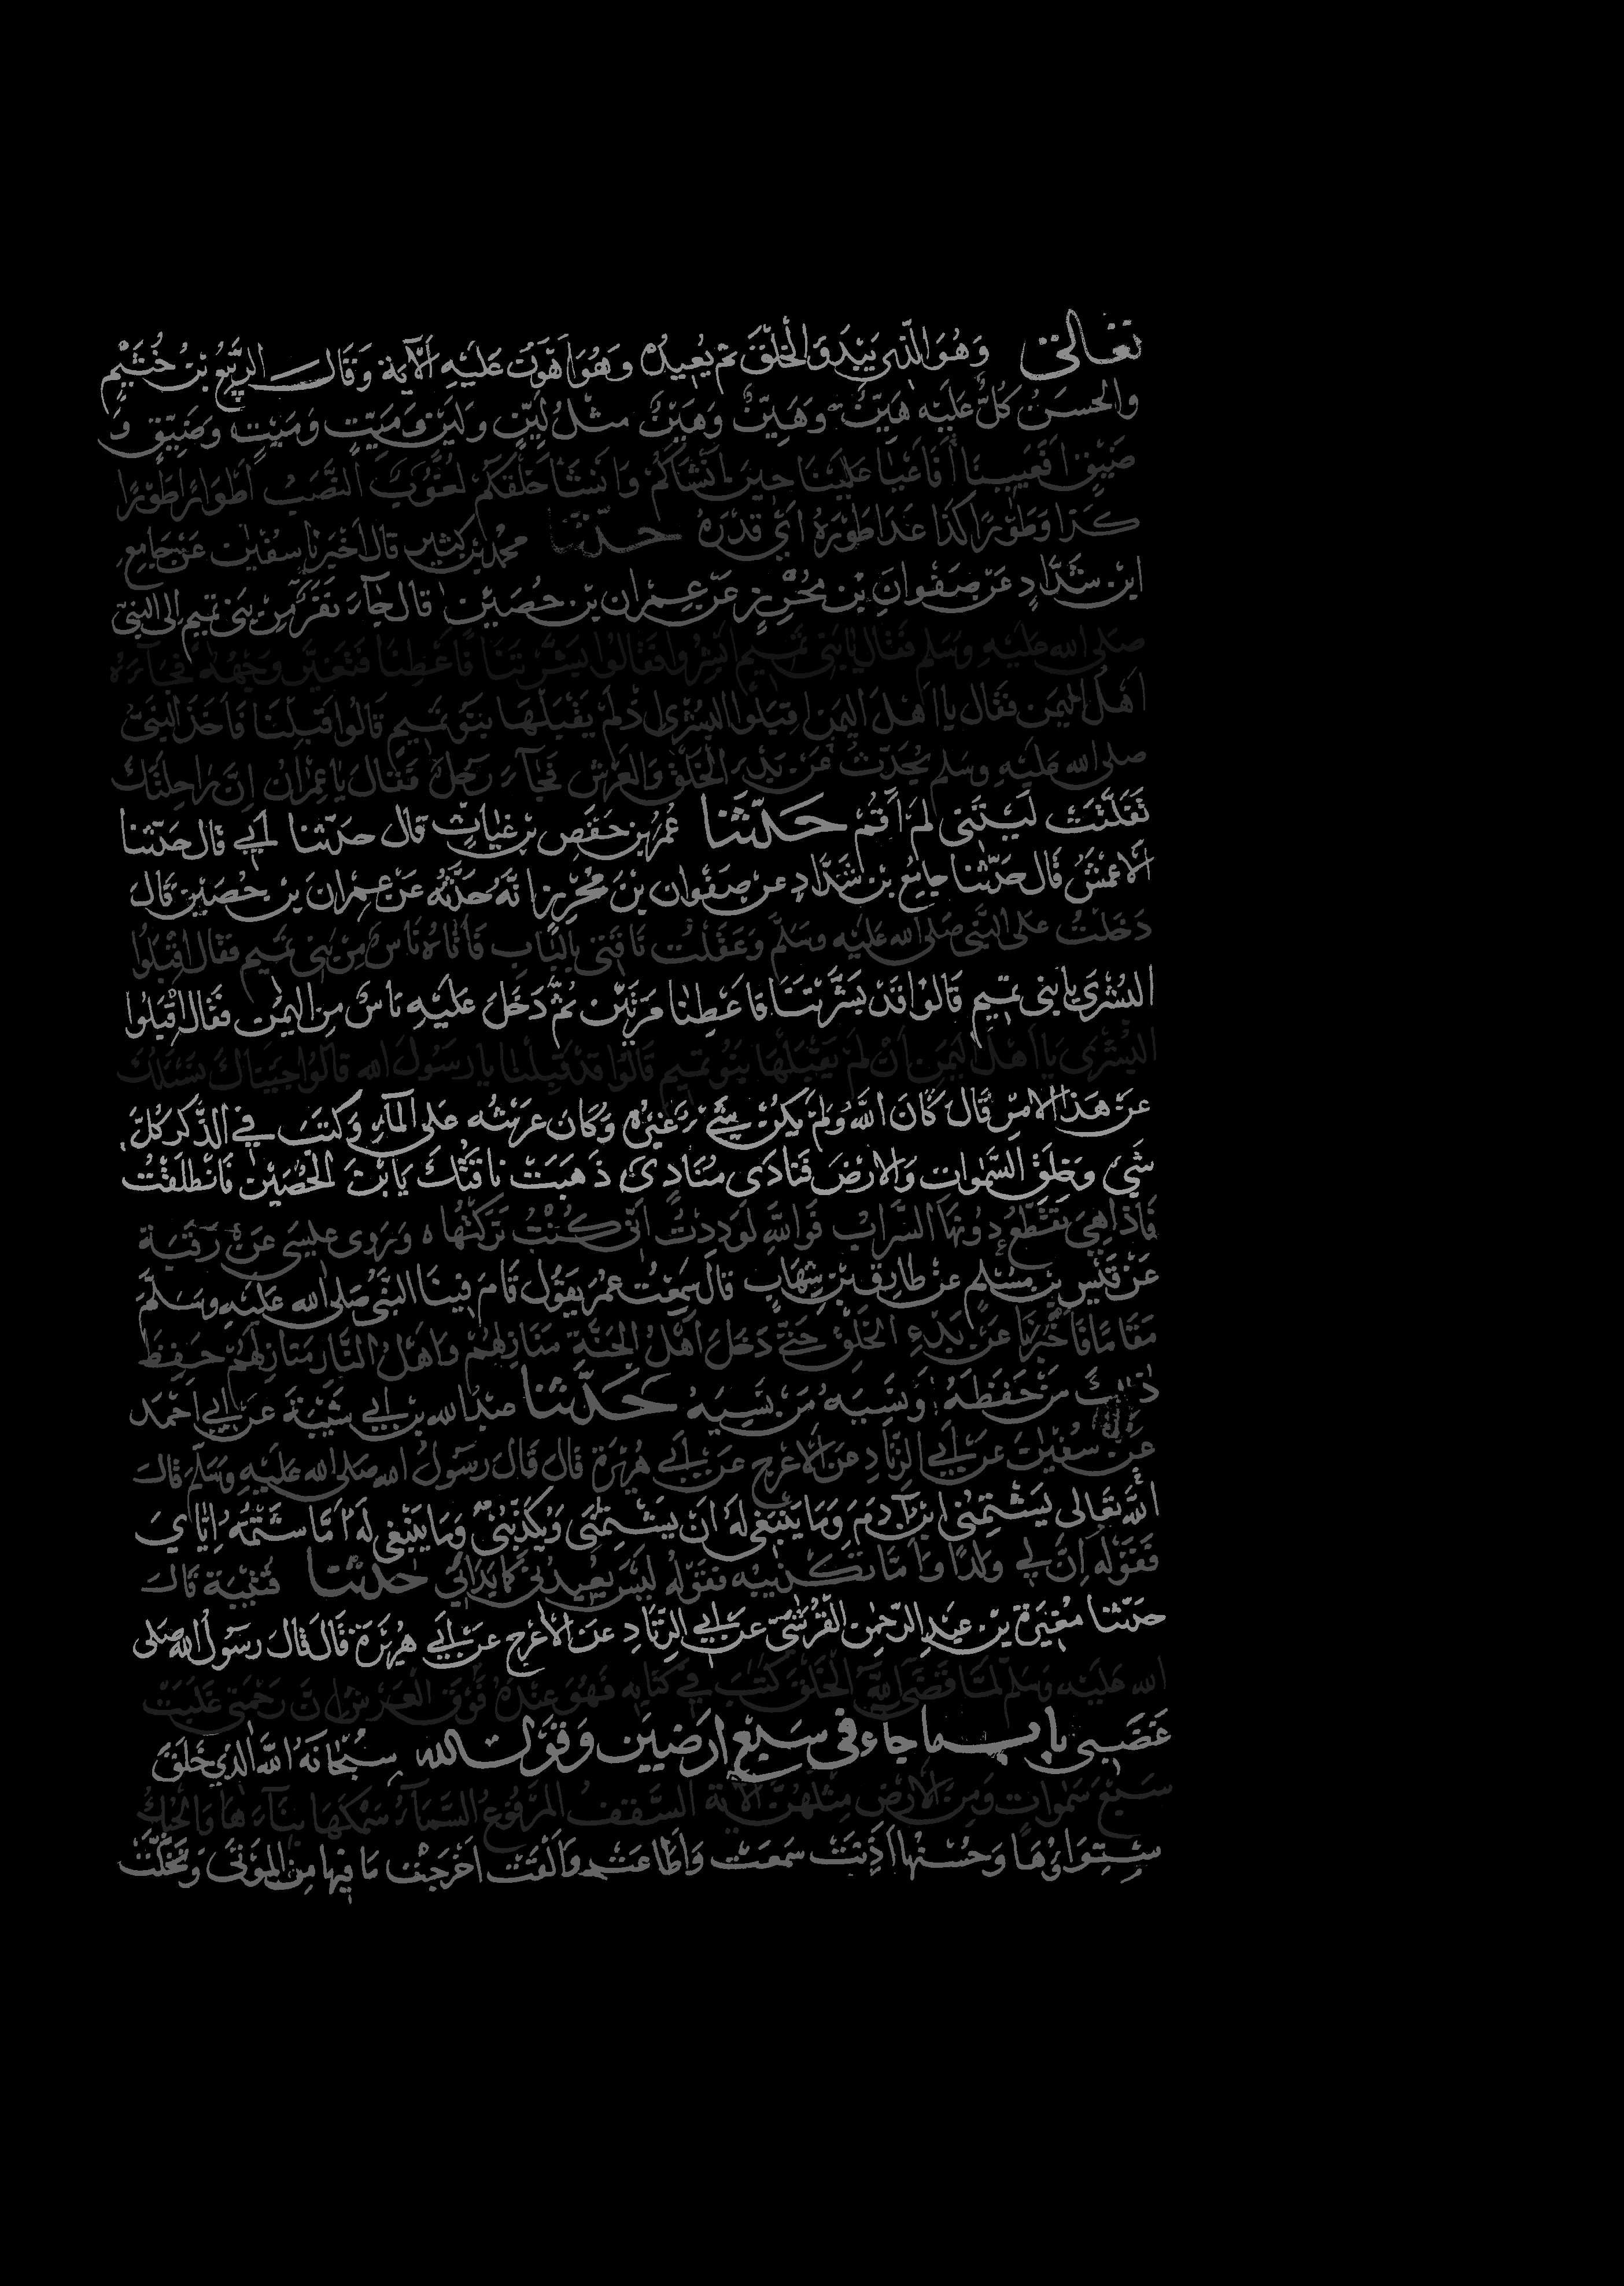 تعالى وَهُوَ الَّذِي يَبْدَؤُ الْخَلْقَ ثم يُعِيدُهُ وهُوَ اَهْوَنُ عَلَيْهِ الْآيَة وَقَال الرَّبِيعُ بْنُ خُثَيْمٍ
والحسَنُ كُلٌّ عَلَيْهِ هَيِّنٌ وهَيِّنٌ وَهَيْنٌ مثلُ لَيِّنٍ ولَيْنٍ ومَيِّتٍ ومَيْتٍ وضَيِّقٍ وَ
ضَيْقٍ افَعَيِينا أفَاعْيَا عَلَيْنَا حِينَ انْشَاكُمْ وَانْشَأ خَلْقَكُمْ لُغُوبٌ النَّصَبُ اَطْوَارًا طَوْرًا
كذا وَطَوْرًا كَذَا عَدَا طَوْرَهُ اَيْ قَدْرَهُ حدثنا محمد بن كثير قال اخبرنا سفيان عن جامع
ابن شَدَّادٍ عن صَفْوانَ بْنِ مُحْرِزٍ عن عِمْران بن حُصَيْنٍ قال جَاءَ نَفَرٌ مِنْ بَنى تميم الى النبى
صلى الله عليه وسلم فقال يا بَنى تَميم ابْشِرُوا فَقالُوا بَشَّرْتَنَا فَاَعْطِنَا فَتَغَيَّرَ وجْهُهُ فجَاءَهُ
اَهْلُ اليَمَن فقال يا اهْلَ اليمَن اقبَلُوا البُشْرى اذ لَمْ يَقْبَلْهَا بَنُو تَميم قَالُوا قَبِلْنَا فَاَخَذَ النبى
صلى الله عليه وسلم يُحَدِّثُ عَنْ بَدْءِ الْخَلْقِ والعَرْش فجَاءَ رَجُلٌ فَقَالَ يا عِمْرَانُ اِنَّ رَاحِلَتَكَ
تَفَلَّتَتْ لَيْتَنى لَمْ اَقُمْ حَدَّثنا عُمَرُ بن حَفْصِ بْنِ غِيَاثٍ قال حدّثنا أبي قال حدّثنا
الاعمشُ قال حدّثنا جامِعُ بن شَدَّادٍ عن صفوان بْنِ مُحْرِزٍ اَنَّهُ حَدَّثَهُ عَنْ عِمْرانَ بن حُصَيْنٍ قَالَ
دَخَلْتُ على النَّبى صَلى الله عليه وسَلَّم وعَقَلْت نَاقَتى بِالْبَابِ فَاَتَاهُ نَاسٌ مِنْ بَنى تَميم فقال اقْبَلُوا
البُشْرَى يا بنى تميم قَالُوا قَدْ بَشَّرْتَنَا فَاَعْطِنا مَرَّتَيْنِ ثُمَّ دَخَلَ عَلَيْهِ نَاسٌ مِنَ اليَمَنِ فقالَ اقْبَلُوا
البُشْرَى يَا اَهْلَ الْيَمَنِ اَنْ لَمْ يَقْبَلْهَا بَنُو تميم قَالُوا قَدْ قَبِلْنَا يا رسُولَ الله قالُوا جِيْنَاكَ نَسْئَلُكَ
عَنْ هَذا الامْرِ قَالَ كَانَ اللَّهُ ولَمْ يَكُنْ شَيْءٌ غَيْرُهُ وكَان عَرْشُه عَلى الماءِ وكتَبَ في الذِّكْر كُلَّ
شَيْءٍ وخَلَقَ السَّمٰوات وَالارْضَ فَنَادَى مُنَادٍ ذَهَبَتْ نَاقَتُكَ يَا بْنَ الحُصَيْنِ فَانْطَلَقْتُ
فَاِذَا هِيَ تَقَطَّعُ دُونَهَا السَّرَابُ فَوَاللَّهِ لَوَدِدتُ اَنّى كُنْتُ تَرَكْتُهَا ه وَرَوى عِيسَى عَنْ رَقَبَة
عَنْ قَيْسِ بن مسْلِم عن طَارِق بْنِ شِهَابٍ قالَ سَمِعْتُ عُمَرَ يَقُولُ قَامَ فِينَا النَّبِيُّ صَلى الله عليهِ وسَلَّمَ
مَقَامًا فَاَخْبَرَنَا عَنْ بَدْءِ الْخَلْقِ حَتَّى دَخَلَ اَهْلُ الْجَنَّةِ مَنَازِلَهُمْ واَهْلُ النَّارِ مَنَازِلَهُمْ حَفِظَ
ذَلِكَ مَنْ حَفِظَهُ وَنَسِيَهُ مَنْ نَسِيَهُ حَدَّثَنا عبد الله بن ابي شَيْبَةَ عَنْ ابي احْمَدَ
عَنْ سُفْيَانَ عن ابي الزِّنَادِ عن الاعْرَج عَنْ ابي هُرَيْرَةَ قال قَالَ رَسُولُ الله صلى الله عَلَيْهِ وَسَلَّمَ قَالَ
اللَّهُ تَعَالى يَشْتِمُني ابْنُ آدَمَ وَمَا يَنْبَغى لَهُ اَنْ يَشْتِمَنى وَيُكَذِّبُنى وَمَا يَنْبَغى لَهُ اَمَّا شَتْمُهُ اِيَّايَ
فَقَوْلُهُ اِنَّ لي ولَدًا وَاَمَّا تَكْذِيبُه فَقَوْلُهُ لَيْسَ يُعِيدُنى كَمَا بَدَاَنِي حَدَّثَنَا قُتَيْبَة قَالَ
حدّثنا مُغِيرَةُ بن عَبدِ الرّحْمٰن القُرَشيّ عن ابي الزِّنَادِ عَن الاعْرَج عن ابي هُرَيْرَةَ قَالَ قَالَ رسُولُ الله صلى
الله عَلَيْه وَسَلَّم لَمَّا قَضَى اللَّهُ الْخَلْقَ كَتَبَ في كِتَابِه فَهُوَ عِنْدَهُ فَوْقَ العَرْش اِنَّ رَحْمَتى غَلَبَتْ
غَضَبِى باب ما جاء فى سَبْعِ ارَضِينَ وَقَوْل الله سُبْحَانَهُ اللَّهُ الَّذِي خَلَقَ
سَبْعَ سَمٰوات وَمِنَ الْارْضِ مِثْلَهُنَّ الآية السَّقْف المرْفُوع السَّمَاءُ سَمْكَهَا بِنَاءَهَا وَالحُبُكُ
اسْتِوَاؤُهَا وَحُسْنُهَا اَذِنَتْ سَمِعَتْ وَاَطَاعَتْ وَاَلْقَتْ اَخْرَجَتْ مَا فِيها مِنَ الْمَوْتَى وَتَخَلَّتْ